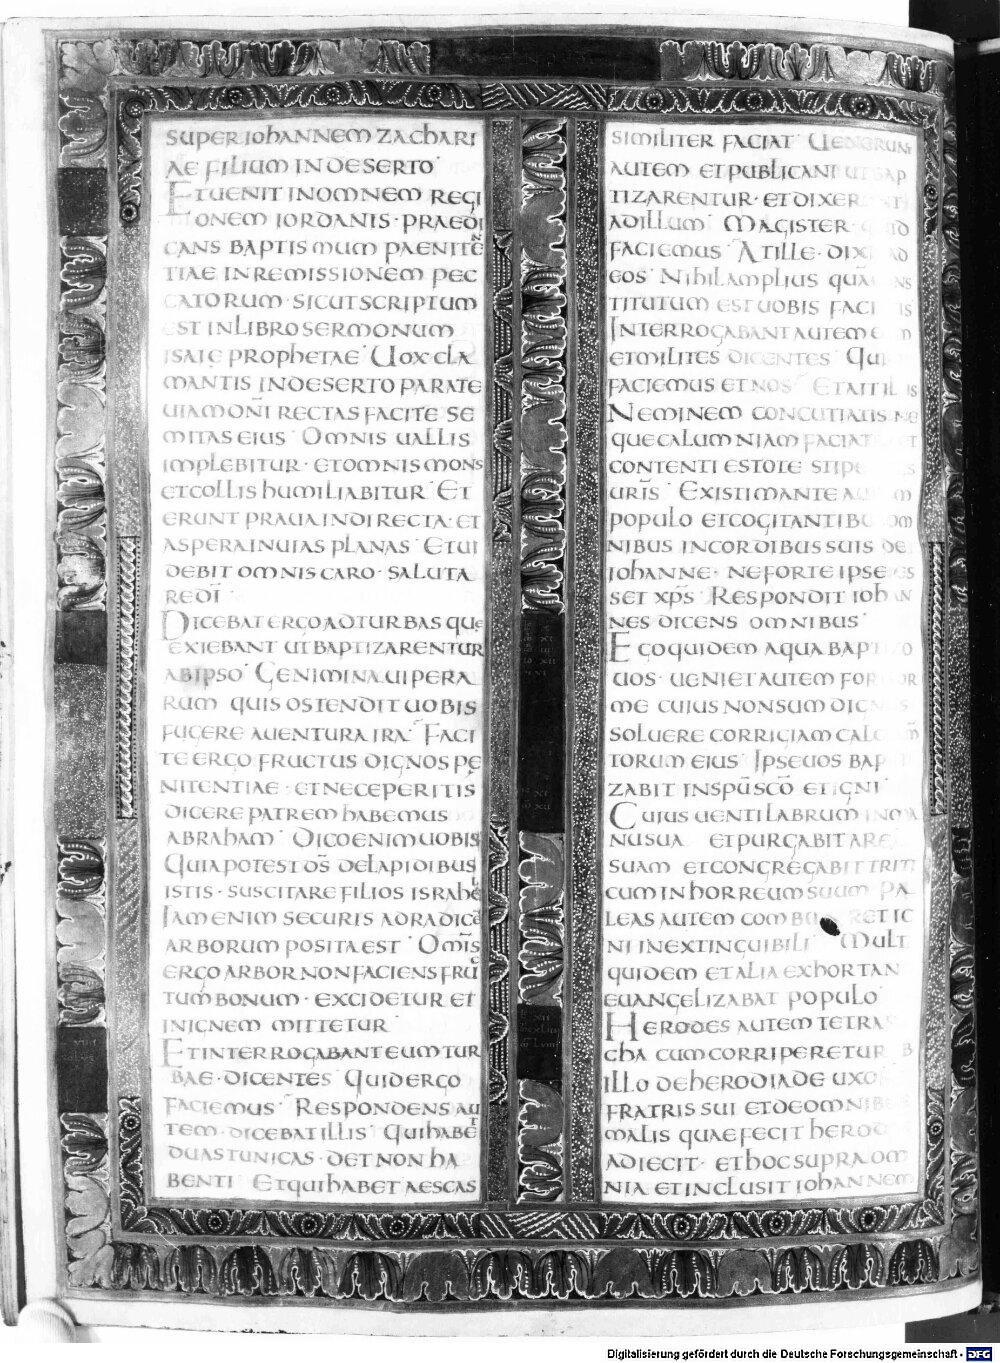 SUPER IOHANNEM ZACHARI
AE FILIUM IN DESERTO
ET UENIT IN OMNEM REGI
ONEM IORDANIS · PRAEDI
CANS BAPTISMUM PAENITĒ
TIAE IN REMISSIONEM PEC
CATORUM · SICUT SCRIPTUM
EST IN LIBRO SERMONUM
ISAIE PROPHETAE UOX CLA
MANTIS IN DESERTO PARATE
UIAM DN̄I RECTAS FACITE SE
MITAS EIUS OMNIS UALLIS
IMPLEBITUR · ET OMNIS MONS
ET COLLIS HUMILIABITUR ET
ERUNT PRAUA IN DIRECTA · ET
ASPERA IN UIAS PLANAS ET UI
DEBIT OMNIS CARO · SALUTA
RE DI̅
DICEBAT ERGO AD TURBAS QUE
EXIEBANT UT BAPTIZARENTUR
AB IPSO GENIMINA UIPERA
RUM QUIS OSTENDIT UOBIS
FUGERE A UENTURA IRA FACI
TE ERGO FRUCTUS DIGNOS PE
NITENTIAE · ET NE CEPERITIS
DICERE PATREM HABEMUS
ABRAHAM DICO ENIM UOBIS
QUIA POTEST DS̄ DE LAPIDIBUS
ISTIS · SUSCITARE FILIOS ISRAHEL
IAM ENIM SECURIS AD RADICĒ
ARBORUM POSITA EST OMĪS
ERGO ARBOR NON FACIENS FRUC
TUM BONUM · EXCIDETUR ET
IN IGNEM MITTETUR
ET INTERROGABANT EUM TUR
BAE · DICENTES QUID ERGO
FACIEMUS RESPONDENS AU
TEM · DICEBAT ILLIS QUI HABET
DUAS TUNICAS · DET NON HA
BENTI ET QUI HABET AESCAS
SIMILITER FACIAT UENERUNT
AUTEM ET PUBLICANI UT BAP
TIZARENTUR · ET DIXERUNT
AD ILLUM MAGISTER · QUID
FACIEMUS AT ILLE · DIXIT AD
EOS NIHIL AMPLIUS QUĀ CONS
TITUTUM EST UOBIS FACI IS
INTERROGABANT AUTEM E M
ET MILITES DICENTES QUI
FACIEMUS ET NOS ET AIT ILLIS
NEMINEM CONCUTIATIS NE
QUE CALUMNIAM FACIAT ET
CONTENTI ESTOTE STIPE S
URĪS EXISTIMANTE AU M
POPULO ET COGITANTIBUS OM
NIBUS IN CORDIBUS SUIS DE
IOHANNE · NE FORTE IPSE ES
SET XP̄S RESPONDIT IOHAN
NES DICENS OMNIBUS
EGO QUIDEM AQUA BAPTIZO
UOS · UENIET AUTEM FORTIOR
ME CUIUS NON SUM DIGNUS
SOLUERE CORRIGIAM CALC M̄
TORUM EIUS IPSE UOS BAPTI
ZABIT IN SPŪ SCŌ ET IGNI
CUIUS UENTILABRUM IN MA
NU SUA ET PURGABIT ARE
SUAM ET CONGREGABIT TRITI
CUM IN HORREUM SUUM PA
LEAS AUTEM COMBURET IG
NI INEXTINGUIBILI MULT
QUIDEM ET ALIA EXHORTAN
EUANGELIZABAT POPULO
HERODES AUTEM TETRAR
CHA CUM CORRIPERETUR AB
ILLO DE HERODIADE UXO
FRATRIS SUI ET DE OMNIBUS
MALIS QUAE FECIT HEROD
ADIECIT · ET HOC SUPRA OM
NIA ET INCLUSIT IOHANNEM
Digitalisierung gefördert durch die Deutsche Forschungsgemeinschaft - DFG